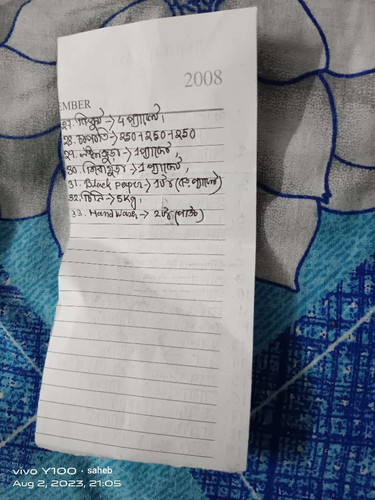 2008
EMBER
27. বিস্কুট → 4 প্যাকেট।
28. চাপাতি → 250+250+250
29. লঙ্কাগুড়া → 1 প্যাকেট,
30. জিরাগুড়া → 1 প্যাকেট,
31. Black paper → 10৳ (বড় প্যাকেট)
32. চিনি → 5 Kg,
33. Hand Wash → 2টি (পাউচ)
vivo Y100 · saheb
Aug 2, 2023, 21:05